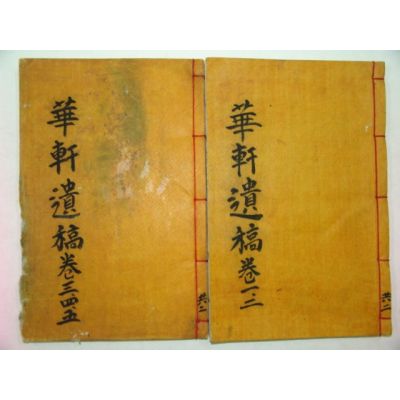 華軒遺稿卷一二
共二
華軒遺稿卷三四五
共二